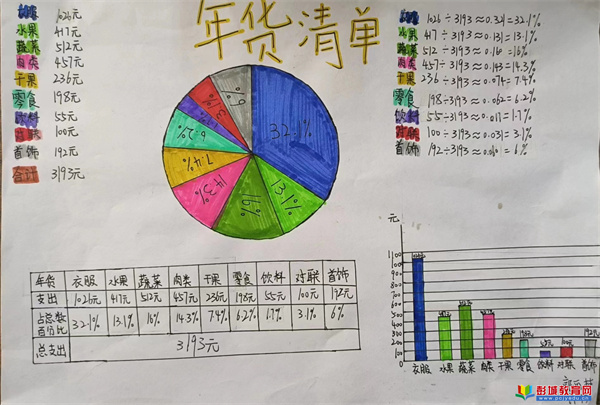 年货清单
衣服 1026元
水果 417元
蔬菜 512元
肉类 457元
干果 236元
零食 198元
饮料 55元
对联 100元
首饰 192元
合计 3193元
衣服 1026÷3193≈0.321=32.1%
水果 417÷3193≈0.131=13.1%
蔬菜 512÷3193≈0.16=16%
肉类 457÷3193≈0.143=14.3%
干果 236÷3193≈0.074=7.4%
零食 198÷3193≈0.062=6.2%
饮料 55÷3193≈0.017=1.7%
对联 100÷3193≈0.031=3.1%
首饰 192÷3193≈0.060=6%
32.1%
13.1%
16%
14.3%
7.4%
6.2%
3.1%
6%
年货 衣服 水果 蔬菜 肉类 干果 零食 饮料 对联 首饰
支出 1026元 417元 512元 457元 236元 198元 55元 100元 192元
占总数百分比 32.1% 13.1% 16% 14.3% 7.4% 6.2% 1.7% 3.1% 6%
总支出 3193元
元
1100
1000
900
800
700
600
500
400
300
200
100
0
衣服 水果 蔬菜 肉类 干果 零食 饮料 对联 首饰
彭城教育网